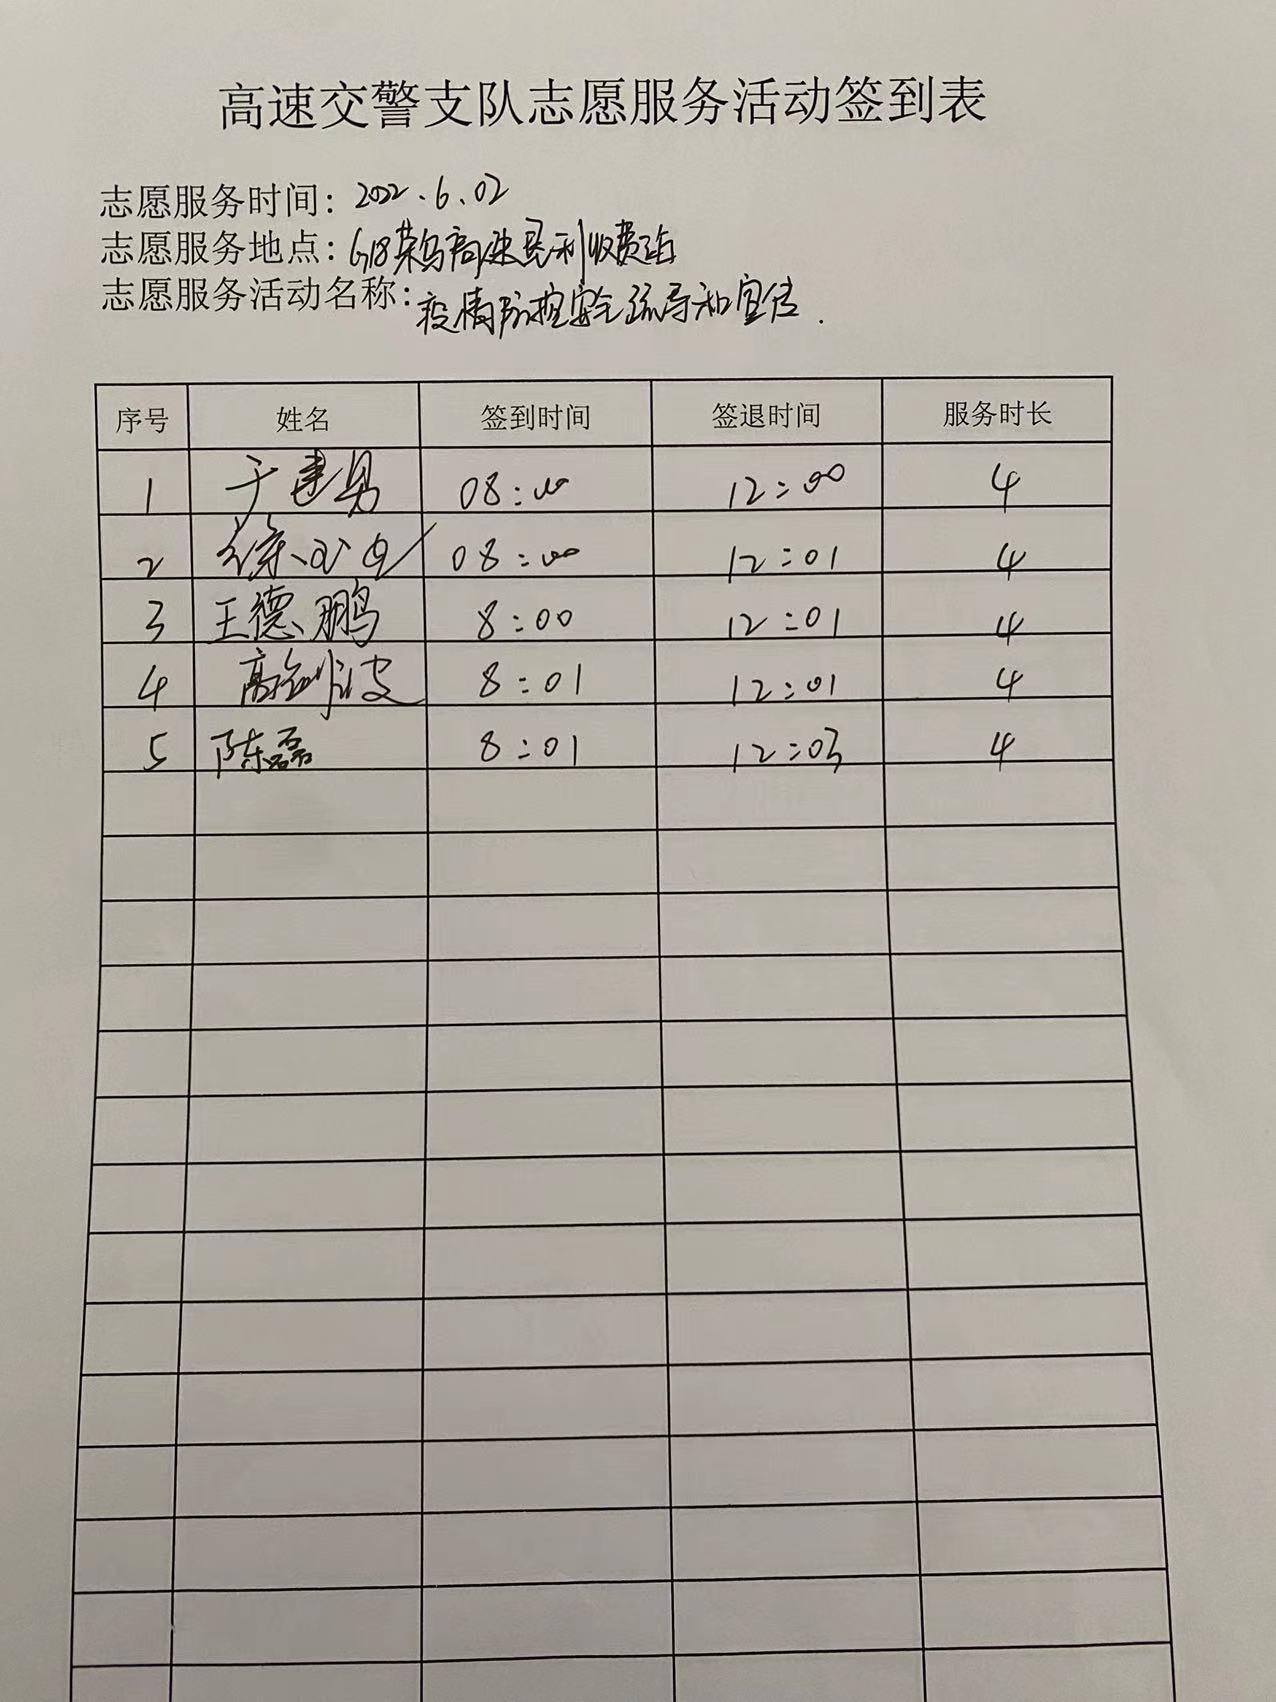 高速交警支队志愿服务活动签到表
志愿服务时间：2022.6.02
志愿服务地点：G18荣乌高速民利收费站
志愿服务活动名称：疫情防控安全疏导和宣传.
序号 姓名 签到时间 签退时间 服务时长
1 于建男 08:00 12:00 4
2 徐 08:00 12:01 4
3 王德鹏 8:00 12:01 4
4 高 波 8:01 12:01 4
5 陈磊 8:01 12:03 4